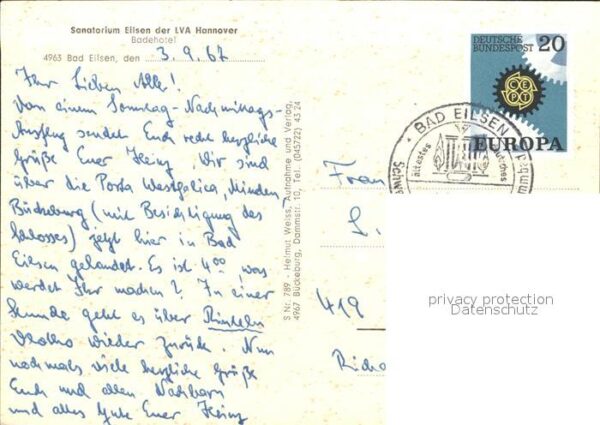 Sanatorium Eilsen der LVA Hannover
Badehotel
4963 Bad Eilsen, den 3.9.67
Ihr Lieben Alle!
Von einem Sonntag-Nachmittags-
Ausflug sendet Euch recht herzliche
Grüße Euer Heinz. Wir sind
über die Porta Westfalica, Minden
Bückeburg (mit Besichtigung des
Schlosses) jetzt hier in Bad
Eilsen gelandet. Es ist 4⁰⁰, was
werdet Ihr machen? In einer
Stunde geht es über Rinteln
Vlotho wieder zurück. Nun
nochmals viele herzliche Grüße
Euch und allen Nachbarn
und alles Gute Euer Heinz
S Nr. 789 - Helmut Weiss, Aufnahme und Verlag,
4967 Bückeburg, Dammstr. 10, Tel. (045722) 43 24
DEUTSCHE
BUNDESPOST 20
CEPT
EUROPA
BAD EILSEN
ältestes
Frau
L.
419
Richa
privacy protection
Datenschutz